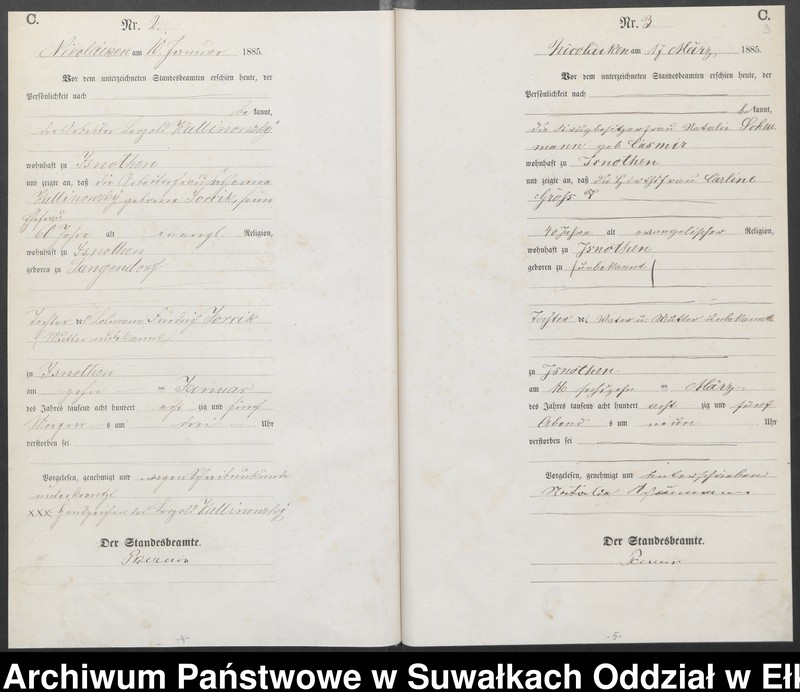 C.
Nr. 2.
Nikolaiken am 10. Januar 1885.
Vor dem unterzeichneten Standesbeamten erschien heute, der
Persönlichkeit nach
be kannt,
der Arbeiter Leopold Kallinowsky
wohnhaft zu Isnothen
und zeigte an, daß die Arbeiterfrau
Kallinowsky geborene seine
Ehefrau
60 Jahre alt evangl Religion,
wohnhaft zu Isnothen
geboren zu Langendorf
Tochter des Friedrich
Mutter unbekannt
zu Isnothen
am zehn ten Januar
des Jahres tausend acht hundert acht zig und fünf
Morgens um drei Uhr
verstorben sei
Vorgelesen, genehmigt und wegen Schreibunkunde
unterkreuzt
xxx Handzeichen des Leopold Kallinowsky
Der Standesbeamte.
-4-
C.
3
Nr. 3
Nicolaiken am 17 März 1885.
Vor dem unterzeichneten Standesbeamten erschien heute, der
Persönlichkeit nach
be kannt,
die Krugbesitzerfrau Natalie
mann geb Casmir
wohnhaft zu Isnothen
und zeigte an, daß die Wirthsfrau Carline
Groß
40 Jahre alt evangelischer Religion,
wohnhaft zu Isnothen
geboren zu (unbekannt)
Tochter des Vater u Mutter unbekannt
zu Isnothen
am 16 sechszehn ten März
des Jahres tausend acht hundert acht zig und fünf
Abend s um neun Uhr
verstorben sei
Vorgelesen, genehmigt und unterschrieben
Natalie
Der Standesbeamte.
-5-
Archiwum Państwowe w Suwałkach Oddział w Ełk